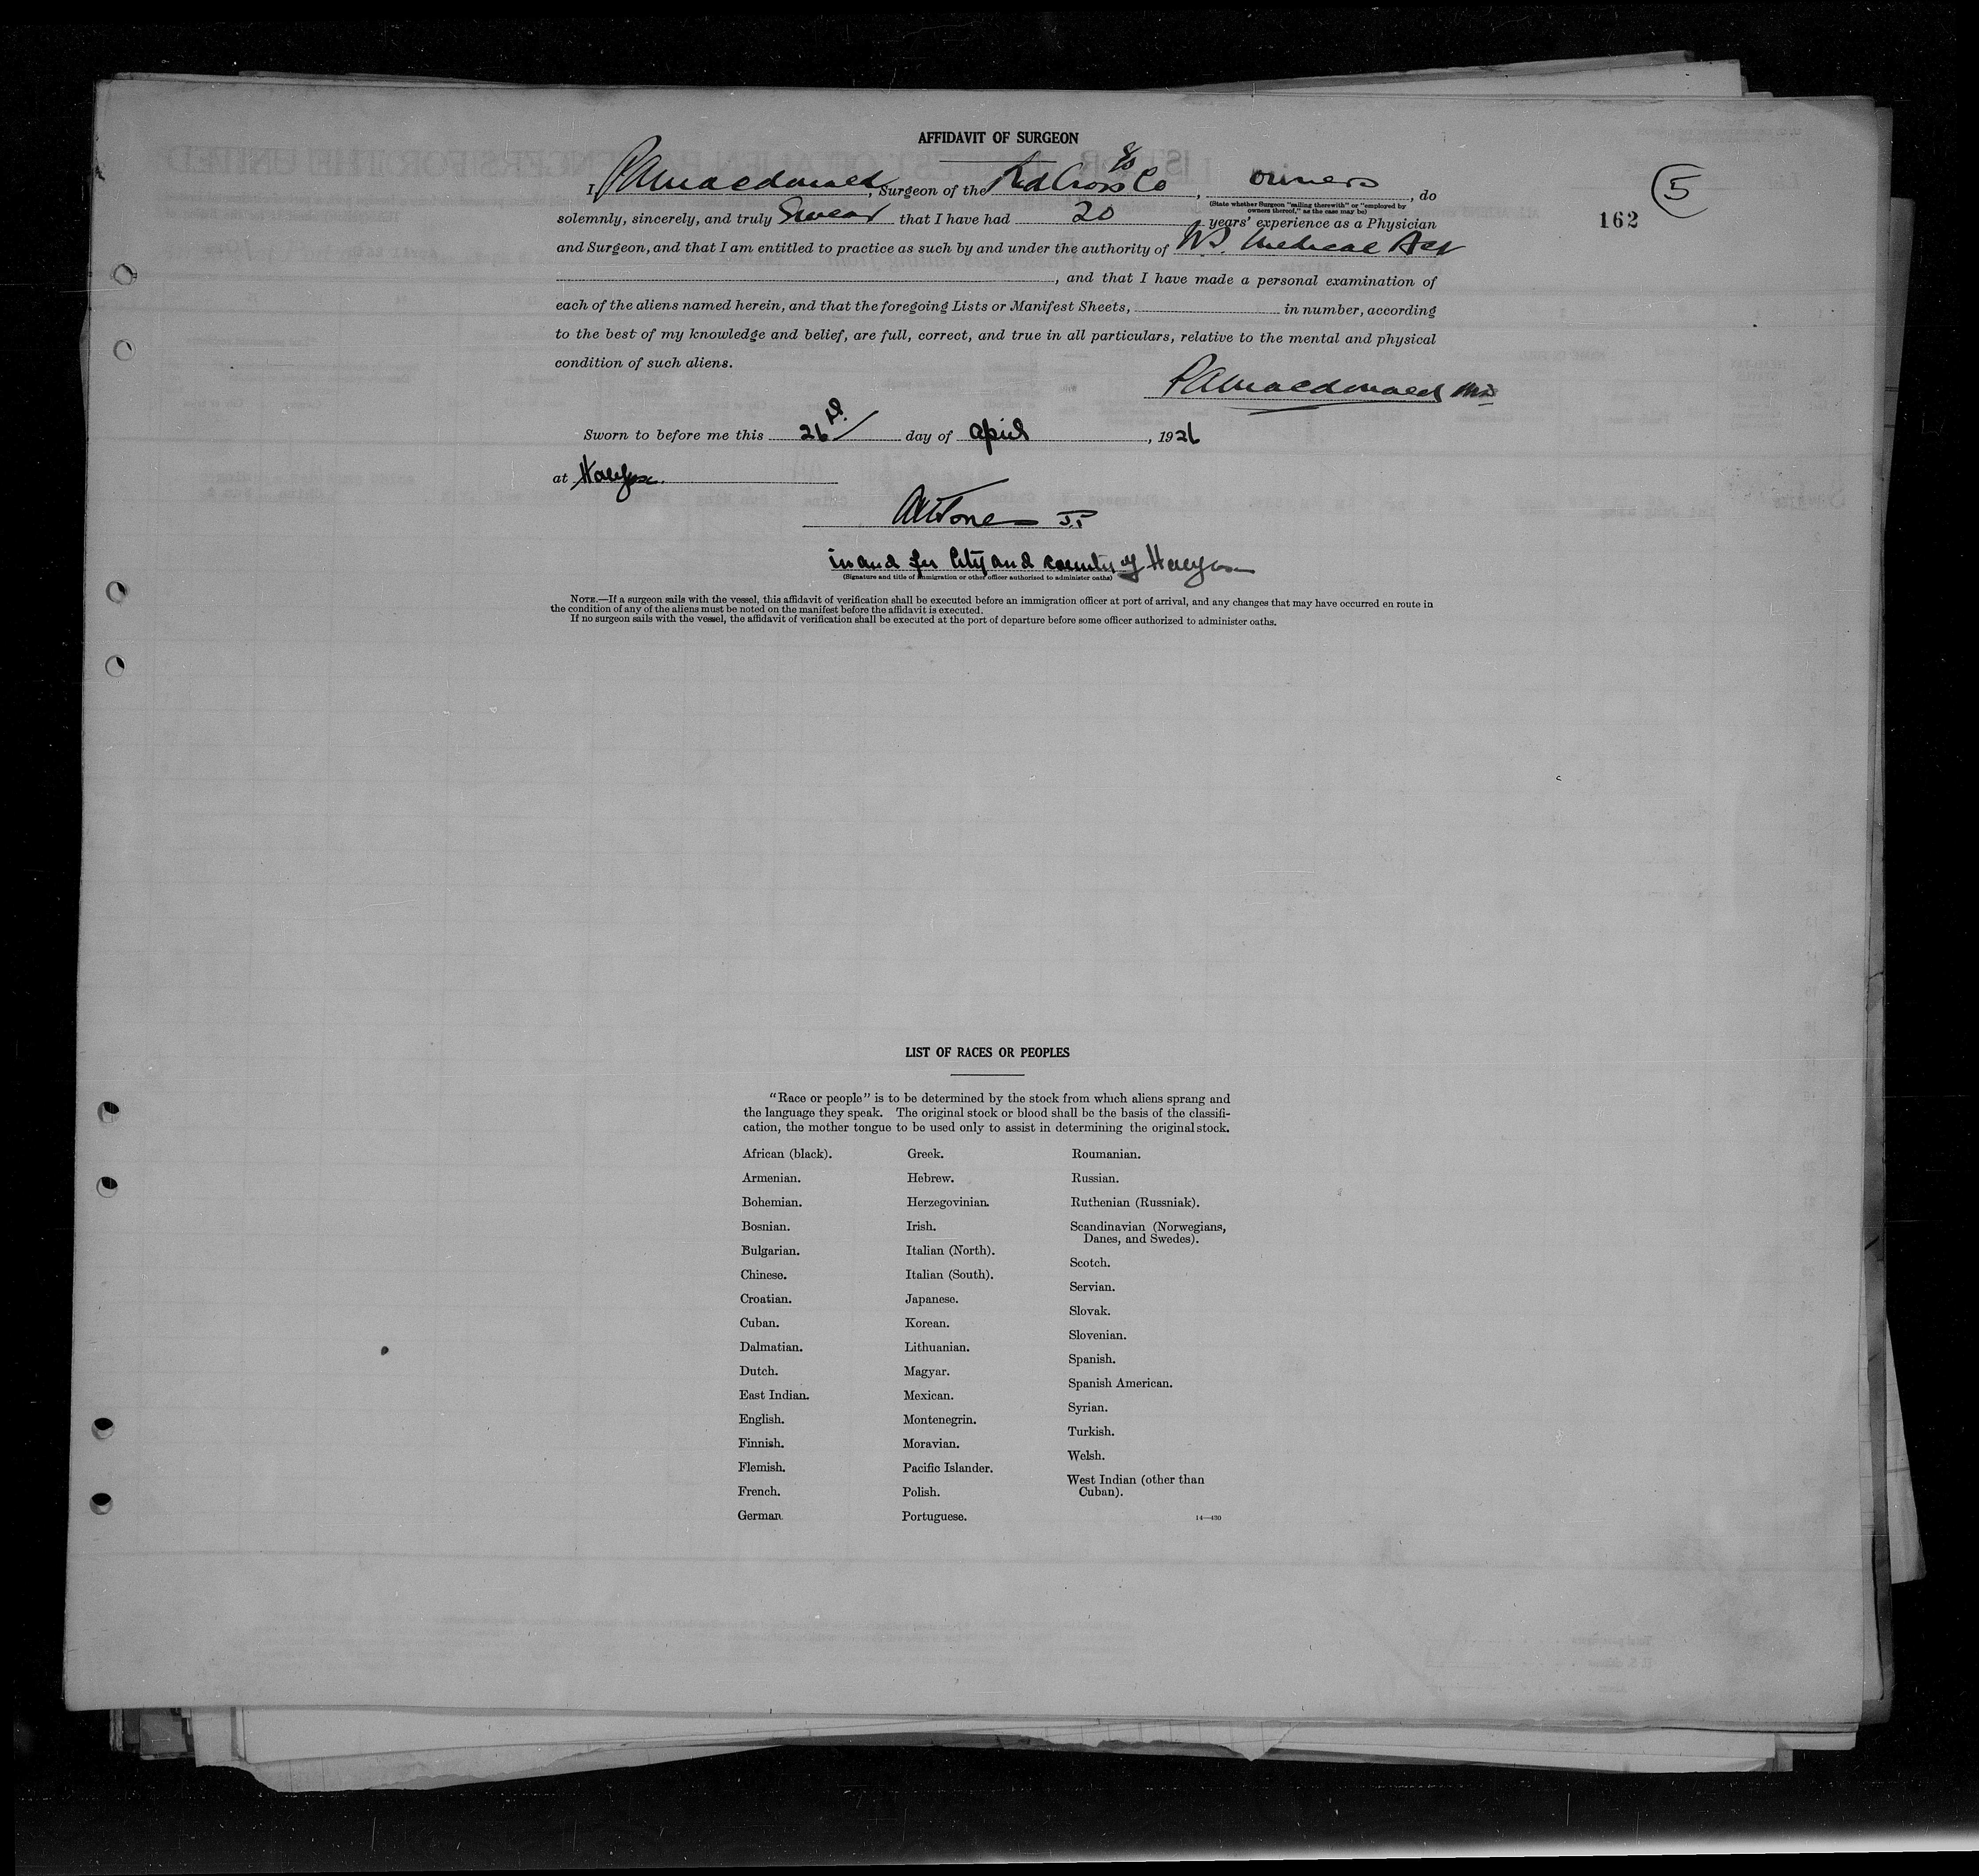 AFFIDAVIT OF SURGEON
I, P A Macdonald, Surgeon of the Red Cross S/S Co, owners, do
(State whether Surgeon "sailing therewith" or "employed by owners thereof," as the case may be)
5
162
solemnly, sincerely, and truly Swear that I have had 20 years' experience as a Physician
and Surgeon, and that I am entitled to practice as such by and under the authority of N.S. Medical Act
, and that I have made a personal examination of
each of the aliens named herein, and that the foregoing Lists or Manifest Sheets, in number, according
to the best of my knowledge and belief, are full, correct, and true in all particulars, relative to the mental and physical
condition of such aliens.
P A Macdonald MD
Sworn to before me this 26th day of April, 1926
at Halifax.
Jones J.P
in and for City and County of Halifax
(Signature and title of immigration or other officer authorized to administer oaths)
NOTE.—If a surgeon sails with the vessel, this affidavit of verification shall be executed before an immigration officer at port of arrival, and any changes that may have occurred en route in
the condition of any of the aliens must be noted on the manifest before the affidavit is executed.
If no surgeon sails with the vessel, the affidavit of verification shall be executed at the port of departure before some officer authorized to administer oaths.
LIST OF RACES OR PEOPLES
"Race or people" is to be determined by the stock from which aliens sprang and
the language they speak. The original stock or blood shall be the basis of the classifi-
cation, the mother tongue to be used only to assist in determining the original stock.
African (black).
Armenian.
Bohemian.
Bosnian.
Bulgarian.
Chinese.
Croatian.
Cuban.
Dalmatian.
Dutch.
East Indian.
English.
Finnish.
Flemish.
French.
German
Greek.
Hebrew.
Herzegovinian.
Irish.
Italian (North).
Italian (South).
Japanese.
Korean.
Lithuanian.
Magyar.
Mexican.
Montenegrin.
Moravian.
Pacific Islander.
Polish.
Portuguese.
Roumanian.
Russian.
Ruthenian (Russniak).
Scandinavian (Norwegians,
Danes, and Swedes).
Scotch.
Servian.
Slovak.
Slovenian.
Spanish.
Spanish American.
Syrian.
Turkish.
Welsh.
West Indian (other than
Cuban).
14—430